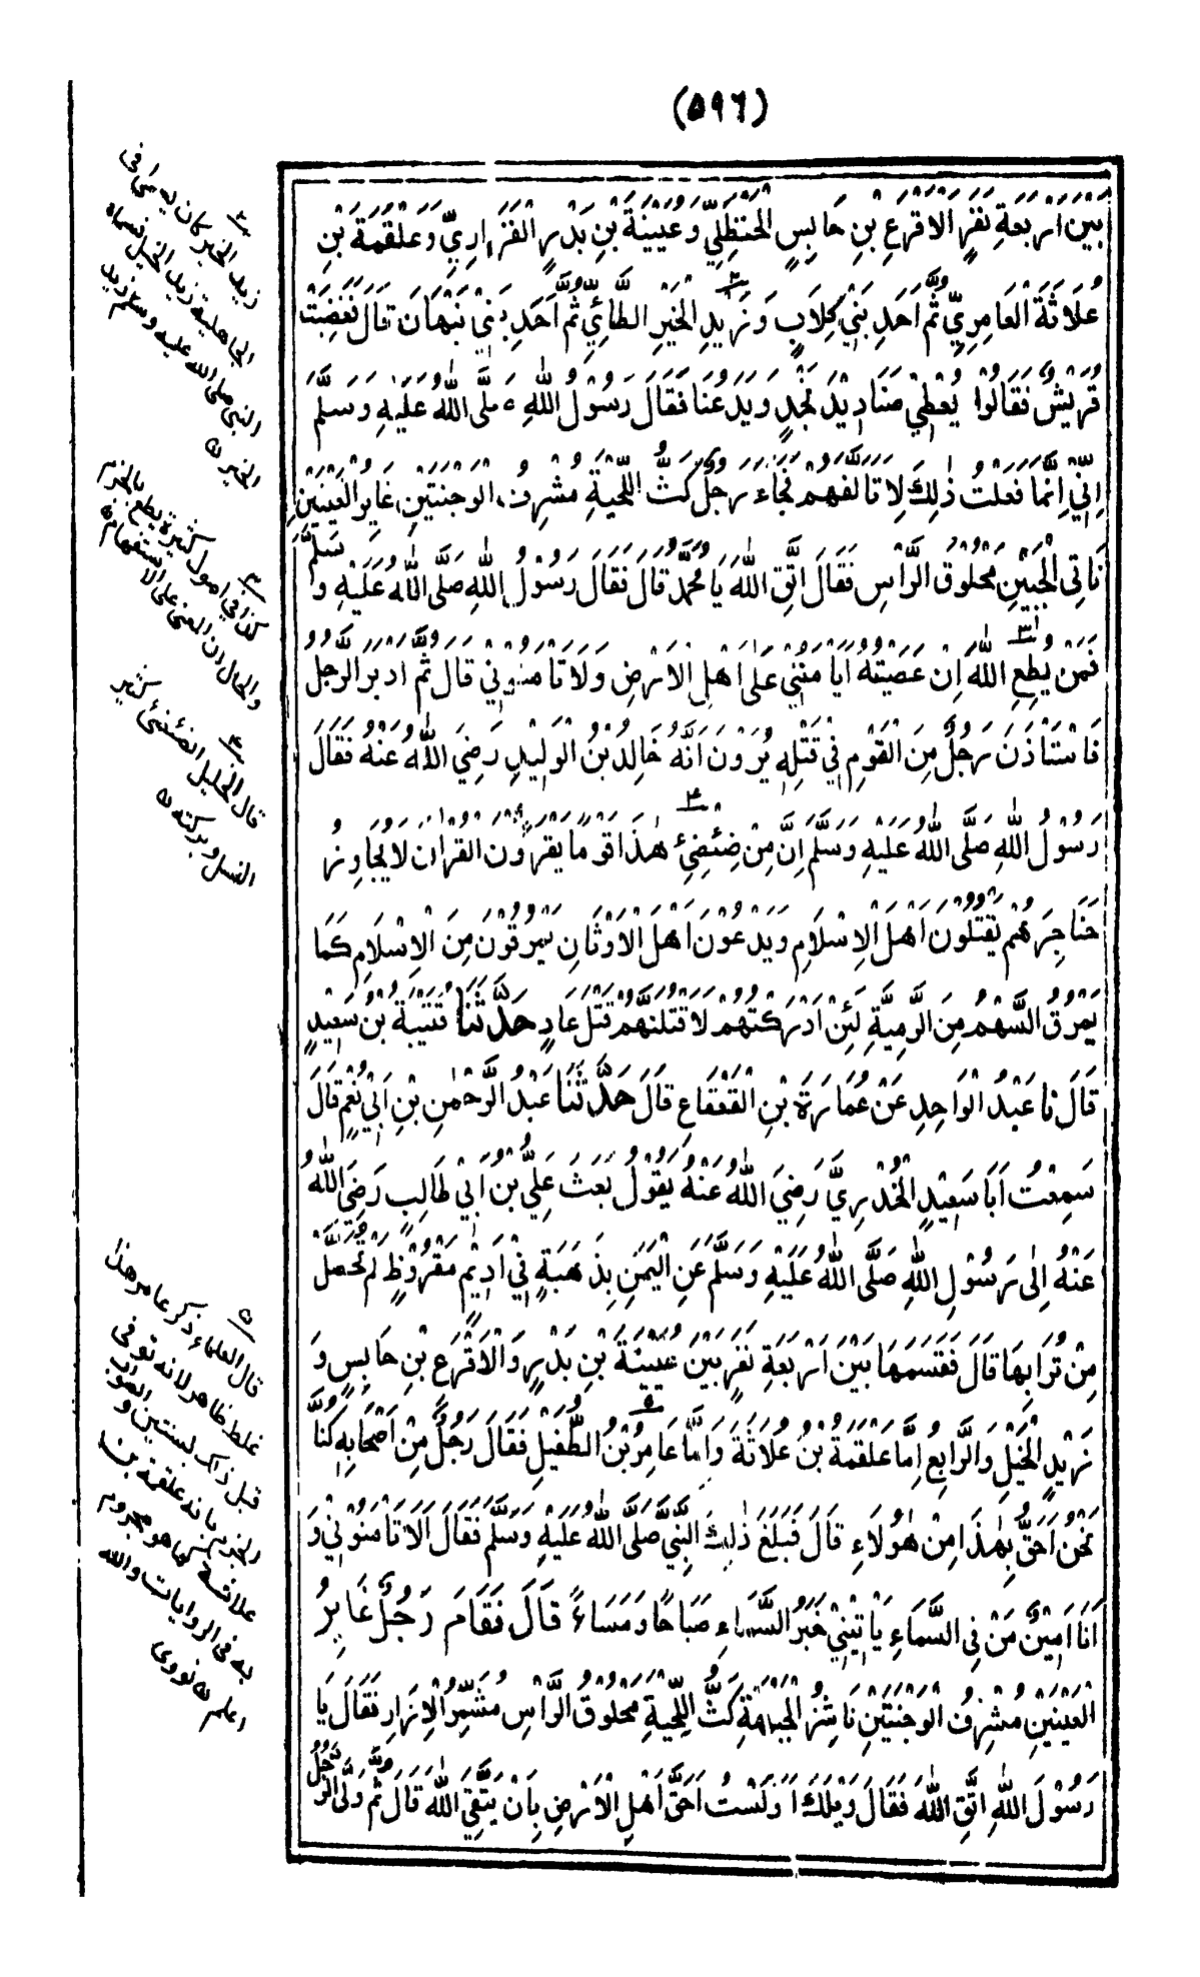 (۵۹۶)
بَيْنَ اَرْبَعَةِ نَفَرٍ الْاَقْرَعِ بْنِ حَابِسٍ الْحَنْظَلِيِّ وَعُيَيْنَةَ بْنِ بَدْرٍ الْفَزَارِيِّ وَعَلْقَمَةَ بْنِ
عُلَاثَةَ الْعَامِرِيِّ ثُمَّ اَحَدِ بَنِيْ كِلَابٍ وَزَيْدِ الْخَيْرِ الطَّائِيِّ ثُمَّ اَحَدِ بَنِيْ نَبْهَانَ قَالَ فَغَضِبَتْ
قُرَيْشٌ فَقَالُوْا يُعْطِيْ صَنَادِيْدَ نَجْدٍ وَيَدَعُنَا فَقَالَ رَسُوْلُ اللّٰهِ صَلَّى اللّٰهُ عَلَيْهِ وَسَلَّمَ
اِنِّيْ اِنَّمَا فَعَلْتُ ذٰلِكَ لِاَتَاَلَّفَهُمْ فَجَاءَ رَجُلٌ كَثُّ اللِّحْيَةِ مُشْرِفُ الْوَجْنَتَيْنِ غَايِرُ الْعَيْنَيْنِ
نَاتِئُ الْجَبِيْنِ مَحْلُوْقُ الرَّاْسِ فَقَالَ اتَّقِ اللّٰهَ يَا مُحَمَّدُ قَالَ فَقَالَ رَسُوْلُ اللّٰهِ صَلَّى اللّٰهُ عَلَيْهِ وَسَلَّمَ
فَمَنْ يُطِعِ اللّٰهَ اِنْ عَصَيْتُهُ اَيَاْمَنُنِيْ عَلٰى اَهْلِ الْاَرْضِ وَلَا تَاْمَنُوْنِيْ قَالَ ثُمَّ اَدْبَرَ الرَّجُلُ
فَاسْتَاْذَنَ رَجُلٌ مِنَ الْقَوْمِ فِيْ قَتْلِهِ يُرَوْنَ اَنَّهُ خَالِدُ بْنُ الْوَلِيْدِ رَضِيَ اللّٰهُ عَنْهُ فَقَالَ
رَسُوْلُ اللّٰهِ صَلَّى اللّٰهُ عَلَيْهِ وَسَلَّمَ اِنَّ مِنْ ضِئْضِئِ هٰذَا قَوْمًا يَقْرَءُوْنَ الْقُرْاٰنَ لَا يُجَاوِزُ
حَنَاجِرَهُمْ يَقْتُلُوْنَ اَهْلَ الْاِسْلَامِ وَيَدَعُوْنَ اَهْلَ الْاَوْثَانِ يَمْرُقُوْنَ مِنَ الْاِسْلَامِ كَمَا
يَمْرُقُ السَّهْمُ مِنَ الرَّمِيَّةِ لَئِنْ اَدْرَكْتُهُمْ لَاَقْتُلَنَّهُمْ قَتْلَ عَادٍ حَدَّثَنَا قُتَيْبَةُ بْنُ سَعِيْدٍ
قَالَ نَا عَبْدُ الْوَاحِدِ عَنْ عُمَارَةَ بْنِ الْقَعْقَاعِ قَالَ حَدَّثَنَا عَبْدُ الرَّحْمٰنِ بْنِ اَبِيْ نُعْمٍ قَالَ
سَمِعْتُ اَبَا سَعِيْدٍ الْخُدْرِيَّ رَضِيَ اللّٰهُ عَنْهُ يَقُوْلُ بَعَثَ عَلِيُّ بْنُ اَبِيْ طَالِبٍ رَضِيَ اللّٰهُ
عَنْهُ اِلٰى رَسُوْلِ اللّٰهِ صَلَّى اللّٰهُ عَلَيْهِ وَسَلَّمَ عَنِ الْيَمَنِ بِذَهَبَةٍ فِيْ اَدِيْمٍ مَقْرُوْظٍ لَمْ تُحَصَّلْ
مِنْ تُرَابِهَا قَالَ فَقَسَمَهَا بَيْنَ اَرْبَعَةِ نَفَرٍ بَيْنَ عُيَيْنَةَ بْنِ بَدْرٍ وَالْاَقْرَعِ بْنِ حَابِسٍ وَ
زَيْدِ الْخَيْلِ وَالرَّابِعُ اِمَّا عَلْقَمَةُ بْنُ عُلَاثَةَ وَاِمَّا عَامِرُ بْنُ الطُّفَيْلِ فَقَالَ رَجُلٌ مِنْ اَصْحَابِهِ كُنَّا
نَحْنُ اَحَقَّ بِهٰذَا مِنْ هٰؤُلَاءِ قَالَ فَبَلَغَ ذٰلِكَ النَّبِيَّ صَلَّى اللّٰهُ عَلَيْهِ وَسَلَّمَ فَقَالَ اَلَا تَاْمَنُوْنِيْ وَ
اَنَا اَمِيْنُ مَنْ فِي السَّمَاءِ يَاْتِيْنِيْ خَبَرُ السَّمَاءِ صَبَاحًا وَمَسَاءً قَالَ فَقَامَ رَجُلٌ غَايِرُ
الْعَيْنَيْنِ مُشْرِفُ الْوَجْنَتَيْنِ نَاشِزُ الْجَبْهَةِ كَثُّ اللِّحْيَةِ مَحْلُوْقُ الرَّاْسِ مُشَمِّرُ الْاِزَارِ فَقَالَ يَا
رَسُوْلَ اللّٰهِ اتَّقِ اللّٰهَ فَقَالَ وَيْلَكَ اَوَلَسْتُ اَحَقَّ اَهْلِ الْاَرْضِ بِاَنْ يَتَّقِيَ اللّٰهَ قَالَ ثُمَّ وَلَّى الرَّجُلُ
٢
زيد الخير كان يسمى فى
الجاهلية زيد الخيل فسماه
النبى صلى الله عليه وسلم زيد
الخير ١٢
٣
كذا فى اصول كثيرة يطع بالجزم
والحال ان المعنى على الاستفهام
٤
قال الخليل الضئضئ كثير
النسل وبركته ١٢
٥
قال العلماء ذكر عامر هنا
غلط ظاهر لانه توفى
قبل ذلك بسنتين والصواب
الجزم بانه علقمة بن
علاثة كما هو مجزوم
به فى الروايات والله
اعلم ١٢ نووى